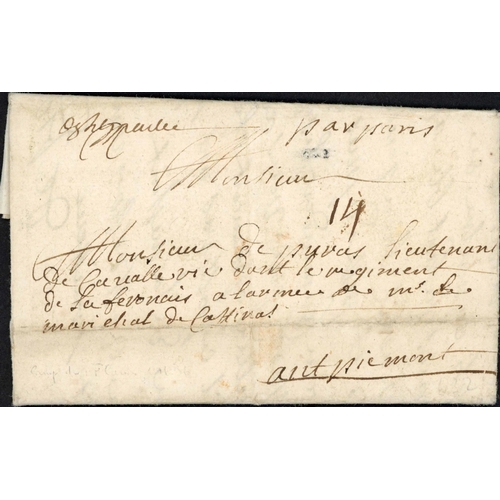 par paris
Monsieur
14
Monsieur de puras lieutenant
de Cavallerie dont le regiment
de la feronais a larmee de mr. le
marichal de Cattinat
aut piemont